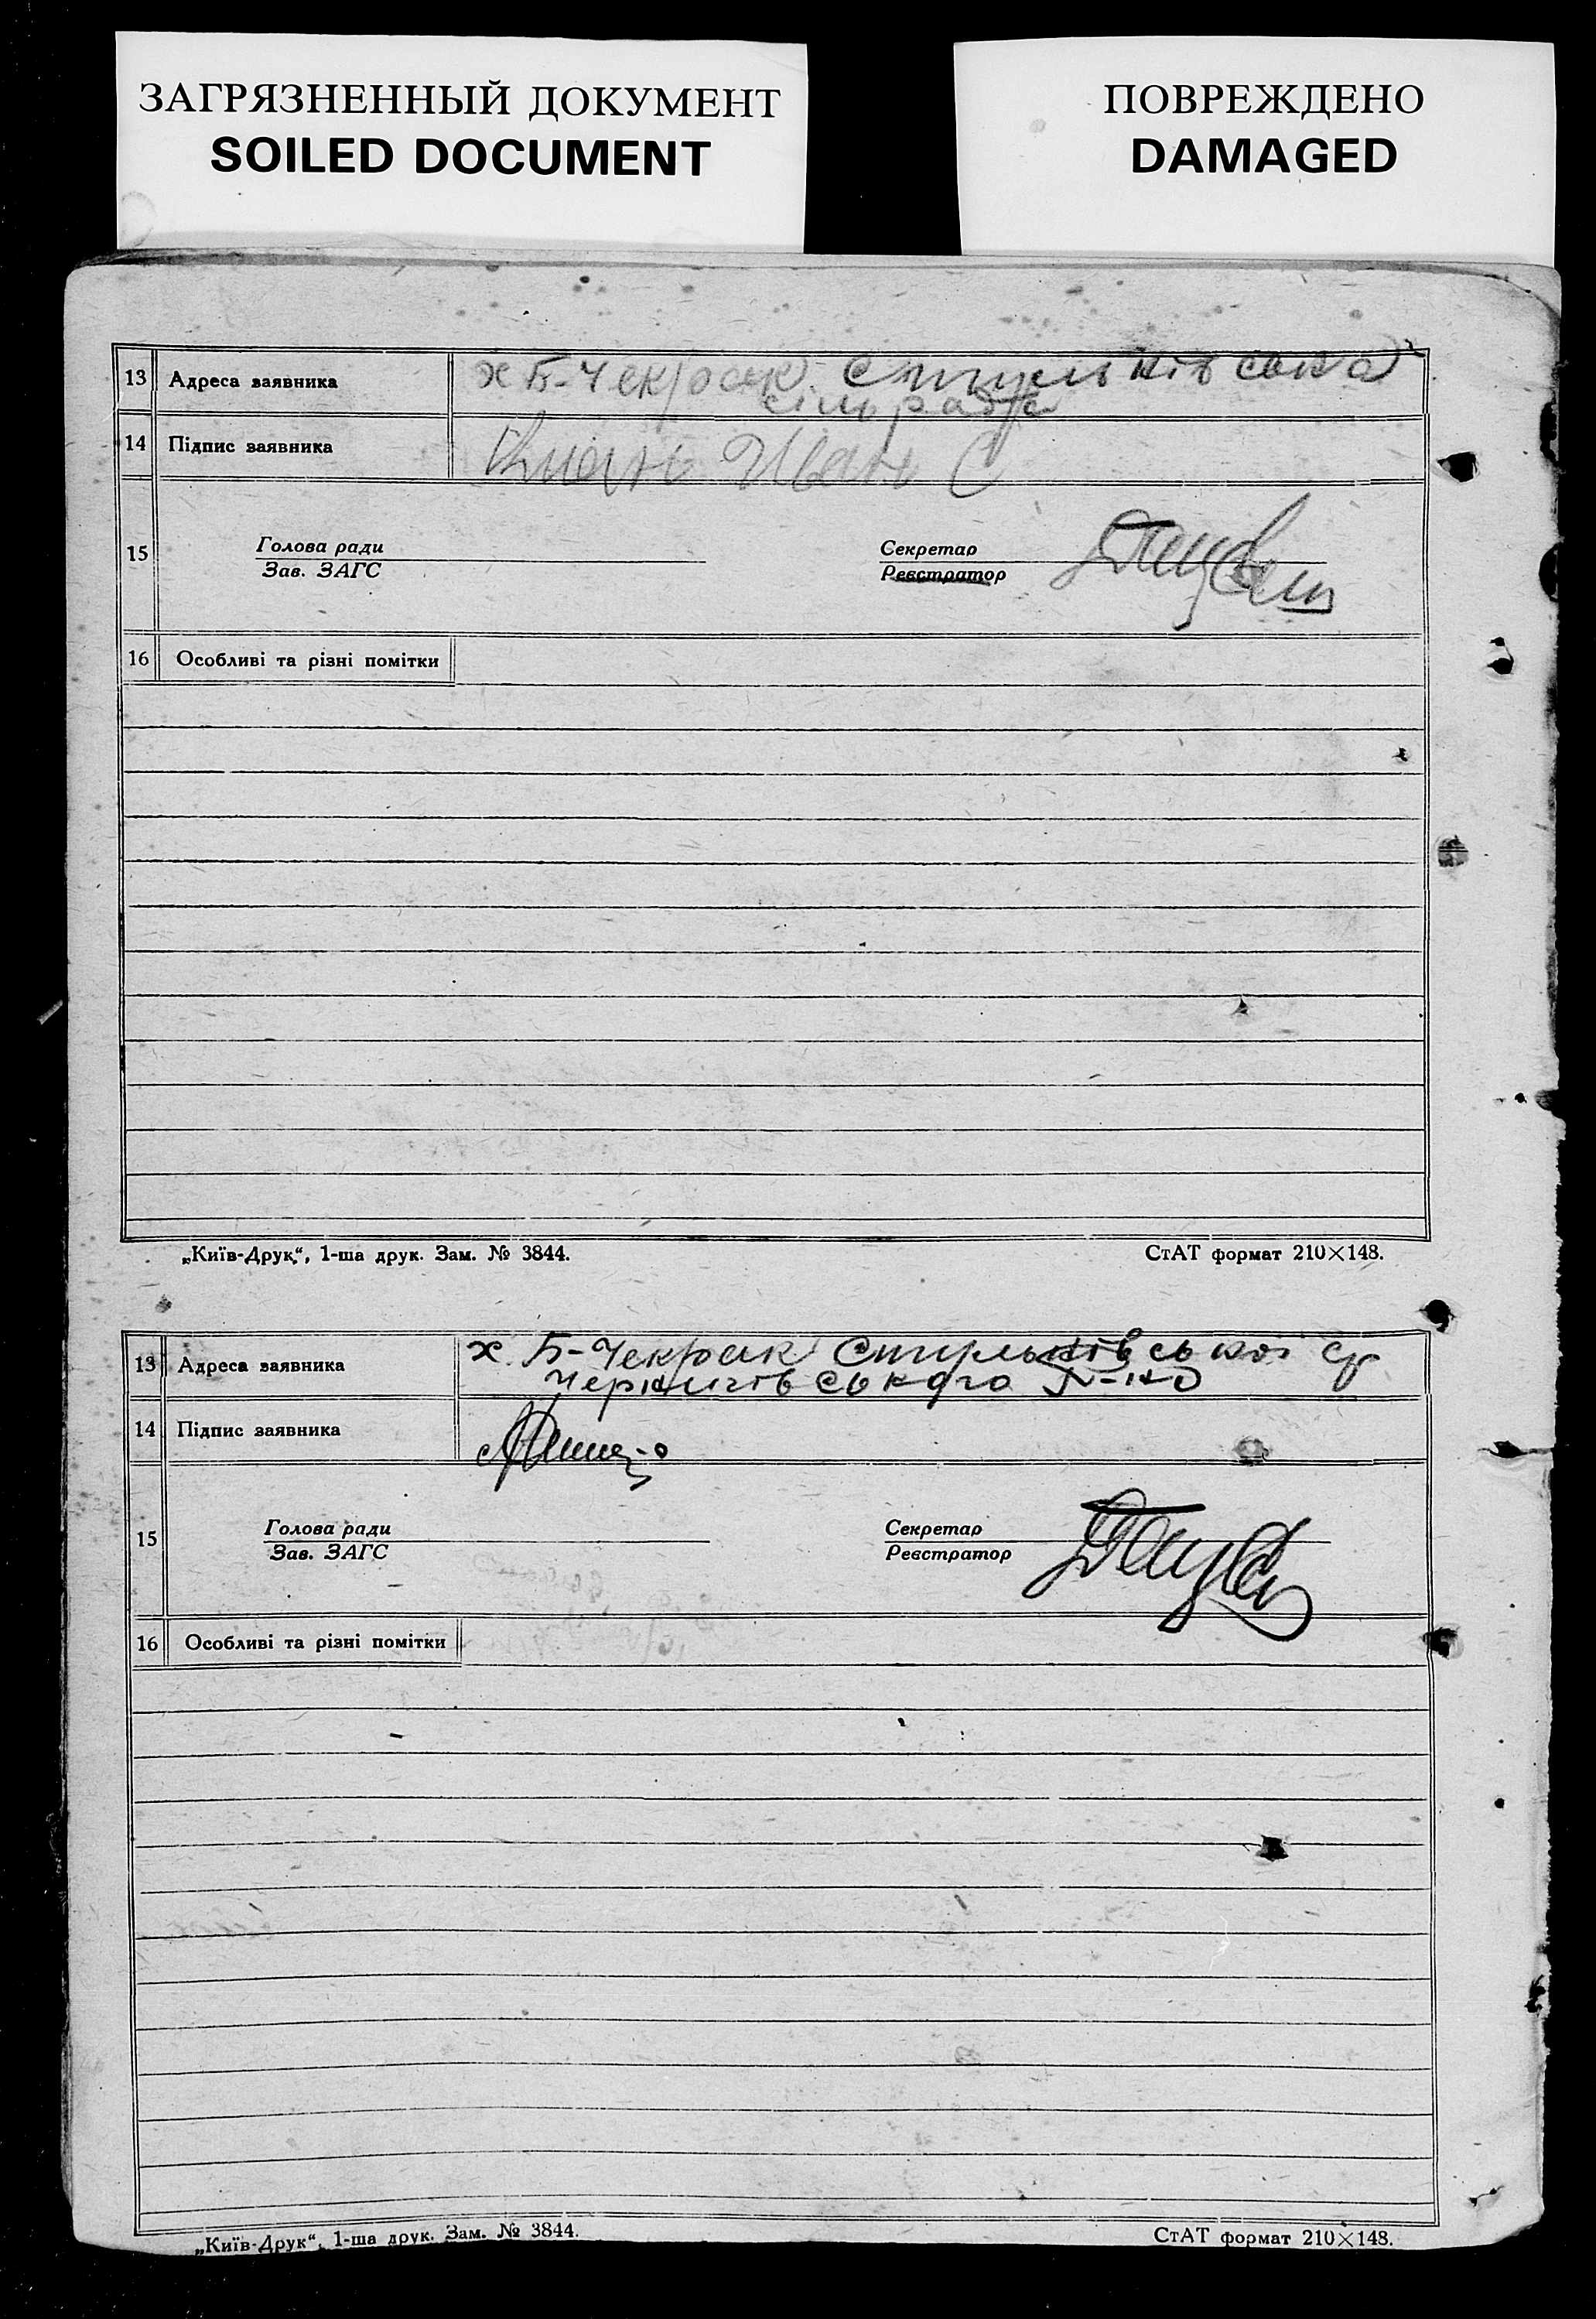 ЗАГРЯЗНЕННЫЙ ДОКУМЕНТ
SOILED DOCUMENT
ПОВРЕЖДЕНО
DAMAGED
13 Адреса заявника х Б-Чекрак Стульнівська
сільрада
14 Підпис заявника Иван С
15 Голова ради Секретар
Зав. ЗАГС Реєстратор
16 Особливі та різні помітки
„Київ-Друк“, 1-ша друк. Зам. № 3844. СтАТ формат 210×148.
13 Адреса заявника х. Б-Чекрак Стульнівської ср
Чернигівського р-но
14 Підпис заявника
15 Голова ради Секретар
Зав. ЗАГС Реєстратор
16 Особливі та різні помітки
„Київ-Друк“, 1-ша друк. Зам. № 3844. СтАТ формат 210×148.